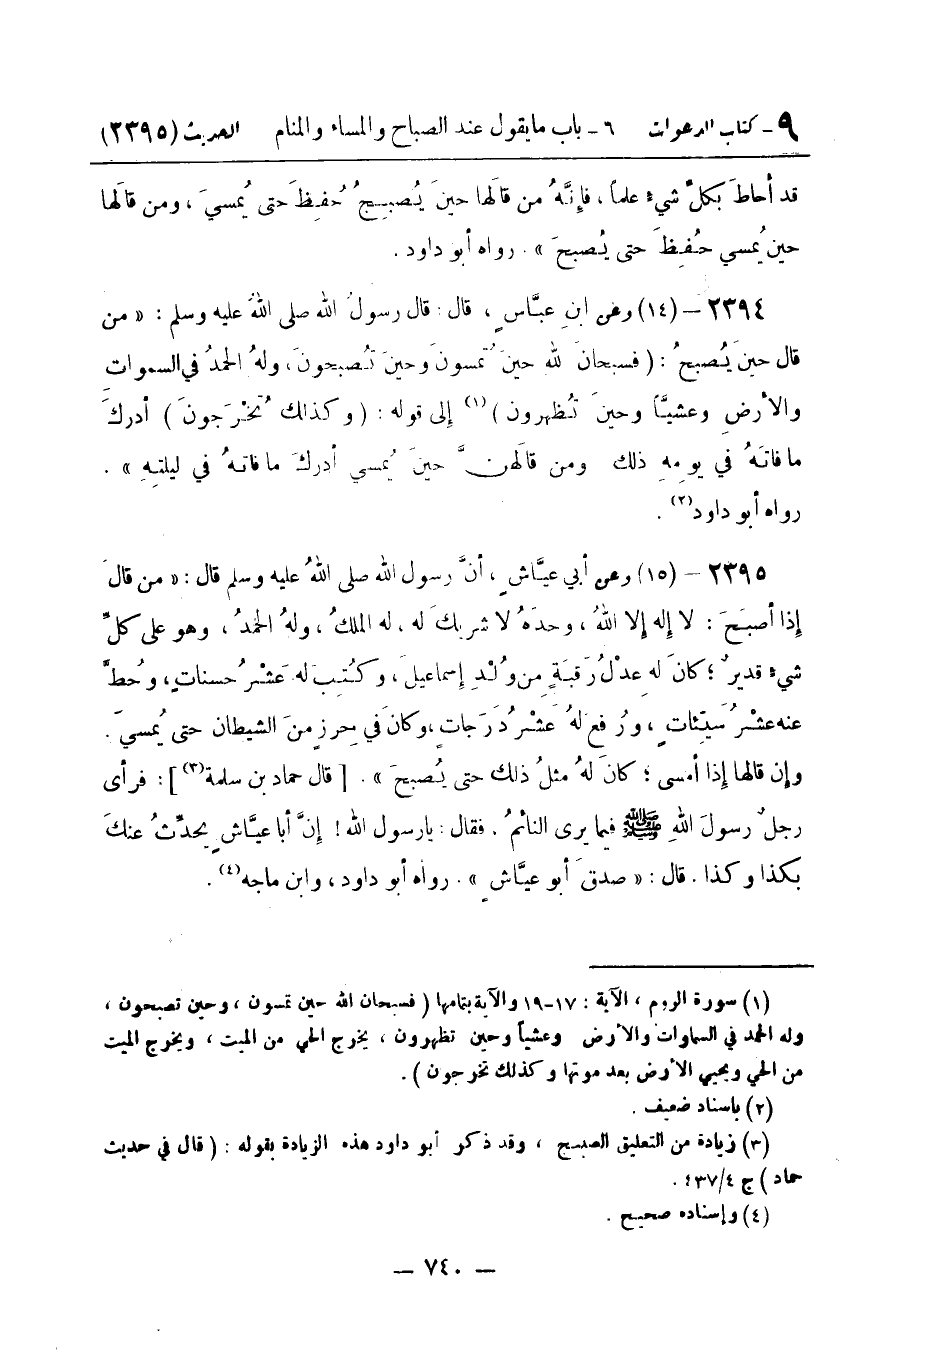 ٩ـ كتاب الدعوات ٦ـ باب مايقول عند الصباح والمساء والمنام الحديث (٢٣٩٥)
قد أحاطَ بكلِّ شيءٍ علماً، فإنَّهُ من قالَها حينَ يُصبحُ حُفِظَ حتى يُمسيَ، ومن قالَها
حين يُمسي حُفِظَ حتى يُصبحَ». رواه أبو داود.
٢٣٩٤ – (١٤) وعن ابنِ عبَّاسٍ، قال: قال رسولُ الله صلى اللهُ عليه وسلم: «من
قال حينَ يُصبحُ: (فسبحانَ للهِ حينَ تُمسونَ وحينَ تُصبحونَ، ولهُ الحمدُ في السموات
والأرضِ وعشيَّاً وحينَ تُظهرون)(١) إلى قوله: (وكذلك تُخْرَجونَ) أدركَ
ما فاتَهُ في يومِهِ ذلك ومن قالَهنَّ حينَ يُمسي أدركَ ما فاتهُ في ليلتِهِ».
رواه أبو داود(٢).
٢٣٩٥ – (١٥) وعن أبي عيَّاشٍ، أنَّ رسول الله صلى اللهُ عليه وسلم قال: «من قالَ
إذا أصبَحَ: لا إله إلا اللهُ، وحدَهُ لا شريكَ له، له الملكُ، ولهُ الحمدُ، وهو على كلِّ
شيءٍ قديرٌ؛ كانَ له عدْلُ رَقبَةٍ من وُلْدِ إسماعيلَ، وكُتِبَ له عَشْرُ حسناتٍ، وحُطَّ
عنه عشْرُ سَيِّئاتٍ، ورُفعَ لهُ عَشْرُ دَرَجاتٍ، وكانَ في حِرزٍ منَ الشيطان حتى يُمسيَ.
وإن قالها إذا أمسى؛ كانَ لهُ مثلُ ذلك حتى يُصبحَ». [قال حماد بن سلمة(٣)]: فرأى
رجلٌ رسولَ اللهِ ﷺ فيما يرى النائمُ. فقال: يارسول الله! إنَّ أبا عيَّاشٍ يحدِّثُ عنكَ
بكذا وكذا. قال: «صدقَ أبو عيَّاشٍ». رواه أبو داود، وابن ماجه(٤).
(١) سورة الروم، الآية: ١٧-١٩ والآية بتمامها (فسبحان الله حين تمسون، وحين تصبحون،
وله الحمد في السماوات والأرض وعشياً وحين تظهرون، يخرج الحي من الميت، ويخرج الميت
من الحي ويحيي الأرض بعد موتها وكذلك تخرجون).
(٢) باسناد ضعيف.
(٣) زيادة من التعليق الصبيح، وقد ذكر أبو داود هذه الزيادة بقوله: (قال في حديث
حماد) ج ٤/٤٣٧.
(٤) وإسناده صحيح.
— ٧٤٠ —